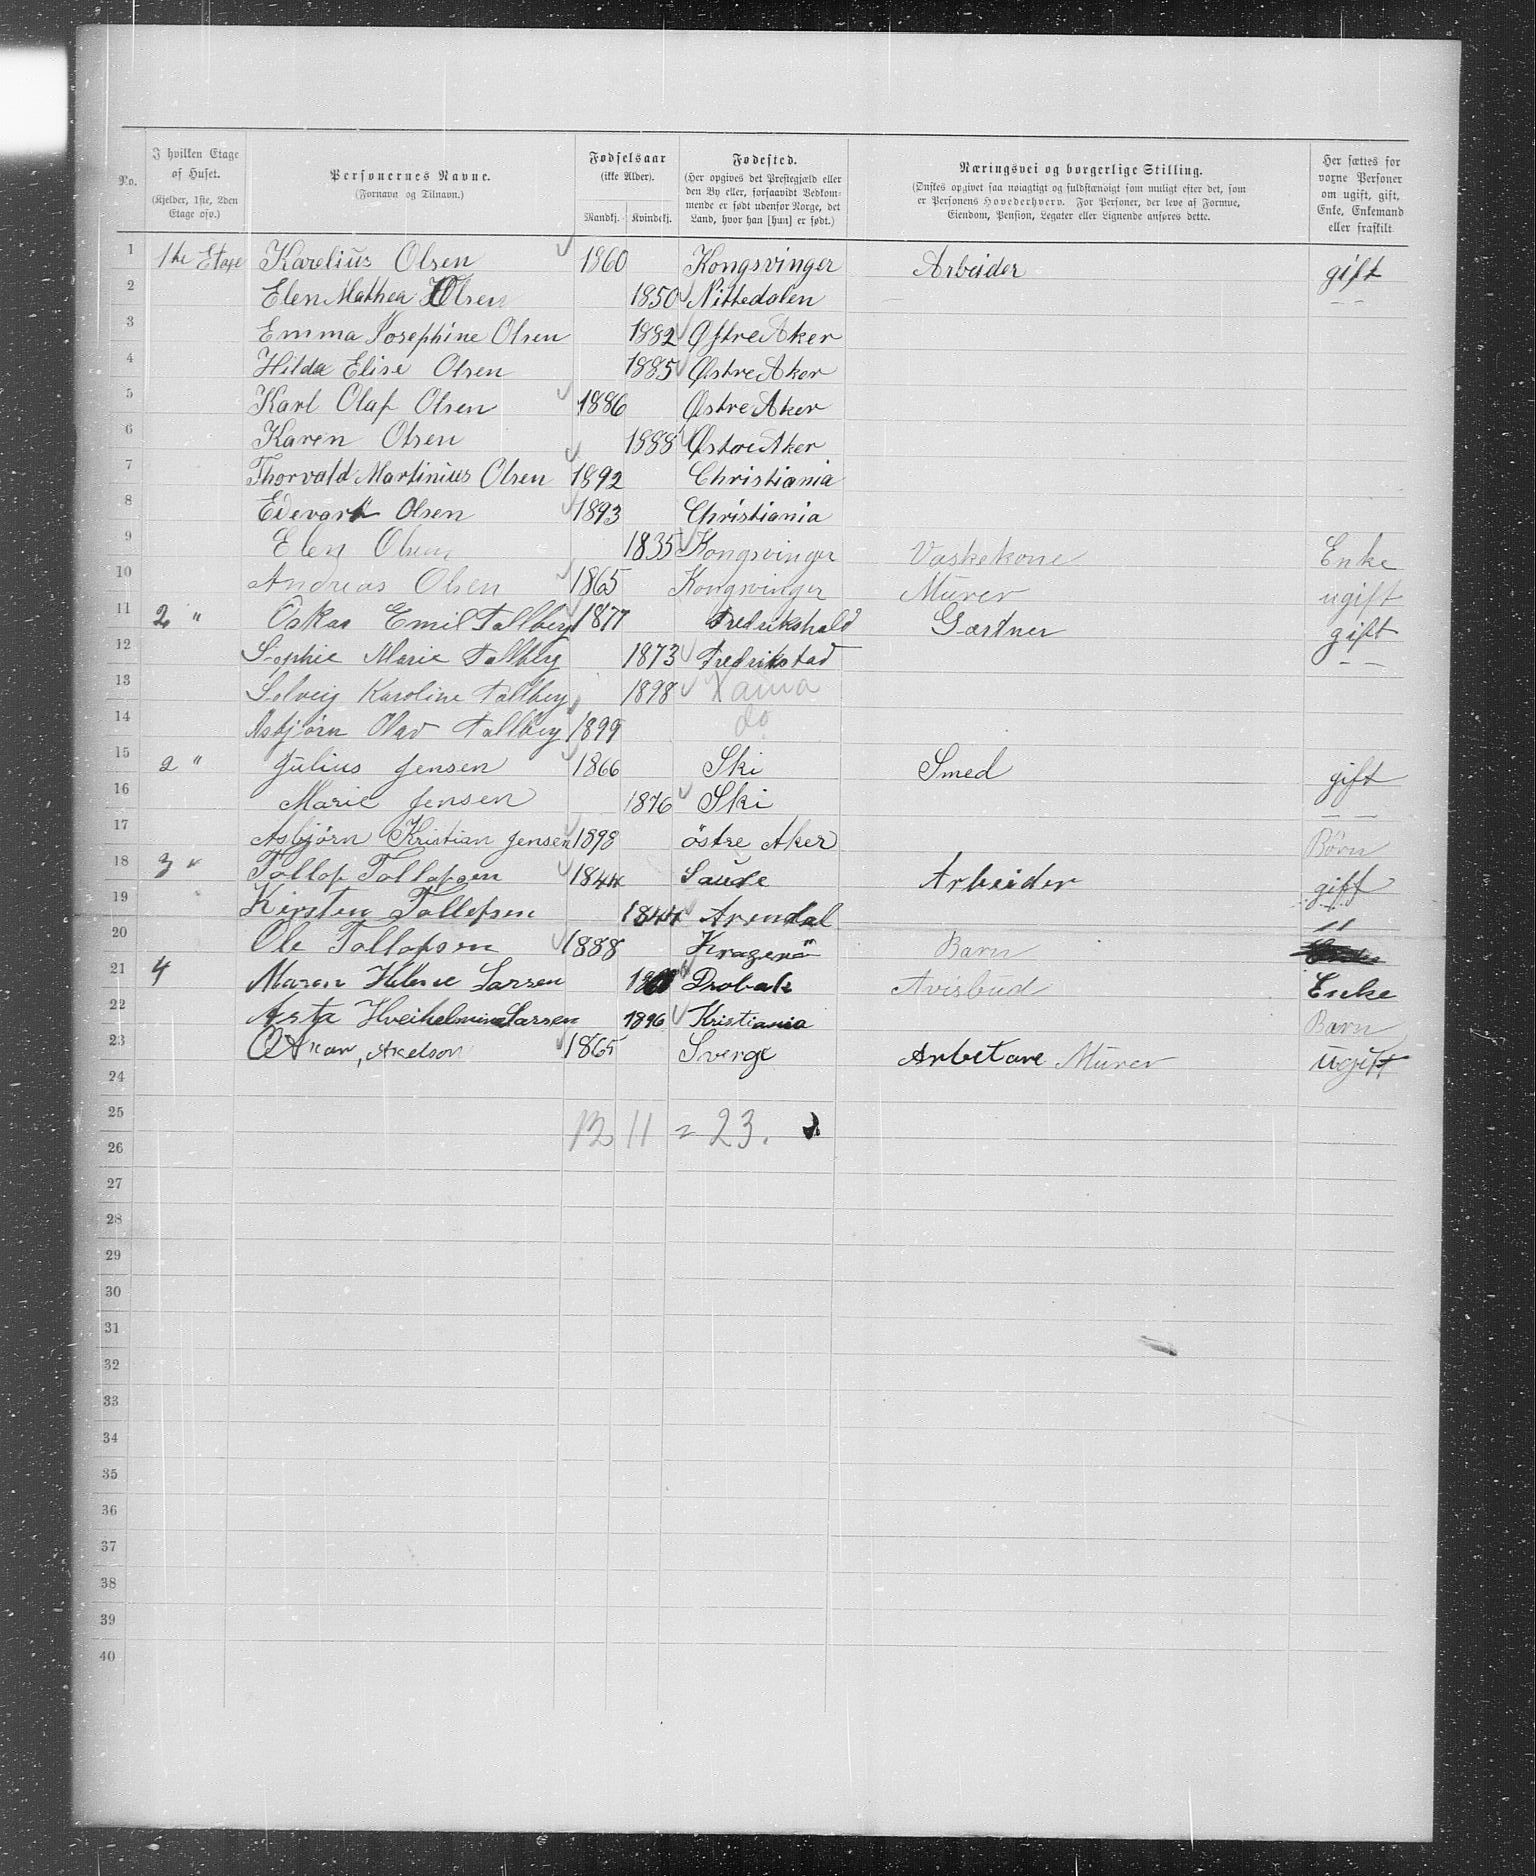 No. I hvilken Etage af Huset. (Kjelder, 1ste, 2den Etage osv.) Personernes Navne. (Fornavn og Tilnavn.) Fødselsaar (ikke Alder). Mandkj. Kvindekj. Fødested. (Her opgives det Prestegjæld eller den By eller, forsaavidt Vedkommende er født udenfor Norge, det Land, hvor han [hun] er født.) Næringsvei og borgerlige Stilling. (Ønskes opgivet saa nøiagtigt og fuldstændigt som muligt efter det, som er Personens Hovederhverv. For Personer, der leve af Formue, Eiendom, Pension, Legater eller Lignende anføres dette.) Her sættes for vorne Personer om ugift, gift, Enke, Enkemand eller fraskilt
1 1ste Etage Karelius Olsen 1860 Kongsvinger Arbeider gift
2 Elen Mathea Olsen 1850 Nittedalen — — —
3 Emma Josephine Olsen 1882 Østre Aker
4 Hilda Elise Olsen 1885 Østre Aker
5 Karl Olaf Olsen 1886 Østre Aker
6 Karen Olsen 1888 Østre Aker
7 Thorvald Martinius Olsen 1892 Christiania
8 Edevart Olsen 1893 Christiania
9 Elen Olsen 1835 Kongsvinger Vaskekone Enke
10 Andreas Olsen 1865 Kongsvinger Murer ugift
11 2 " Oskar Emil Tallberg 1877 Fredrikshald Gartner gift
12 Sophie Marie Tallberg 1873 Fredrikstad — —
13 Solveig Karoline Tallberg 1898 Xania
14 Asbjørn Olav Tallberg 1899 do
15 2 " Julius Jensen 1866 Ski Smed gift
16 Marie Jensen 1876 Ski — —
17 Asbjørn Kristian Jensen 1898 östre Aker Børn
18 3 " Tollof Tollofsen 1844 Saude Arbeider gift
19 Kirsten Tollefsen 1844 Arendal "
20 Ole Tollofsen 1888 Kragerö Barn
21 4 Maren Helene Larsen Drobak Avisbud Enke
22 Asta Hveihelmine Larsen 1896 Kristiania Barn
23 Oskar, Axelson 1865 Sverge Arbetare Murer ugift
24
25 12 11 = 23.
26
27
28
29
30
31
32
33
34
35
36
37
38
39
40